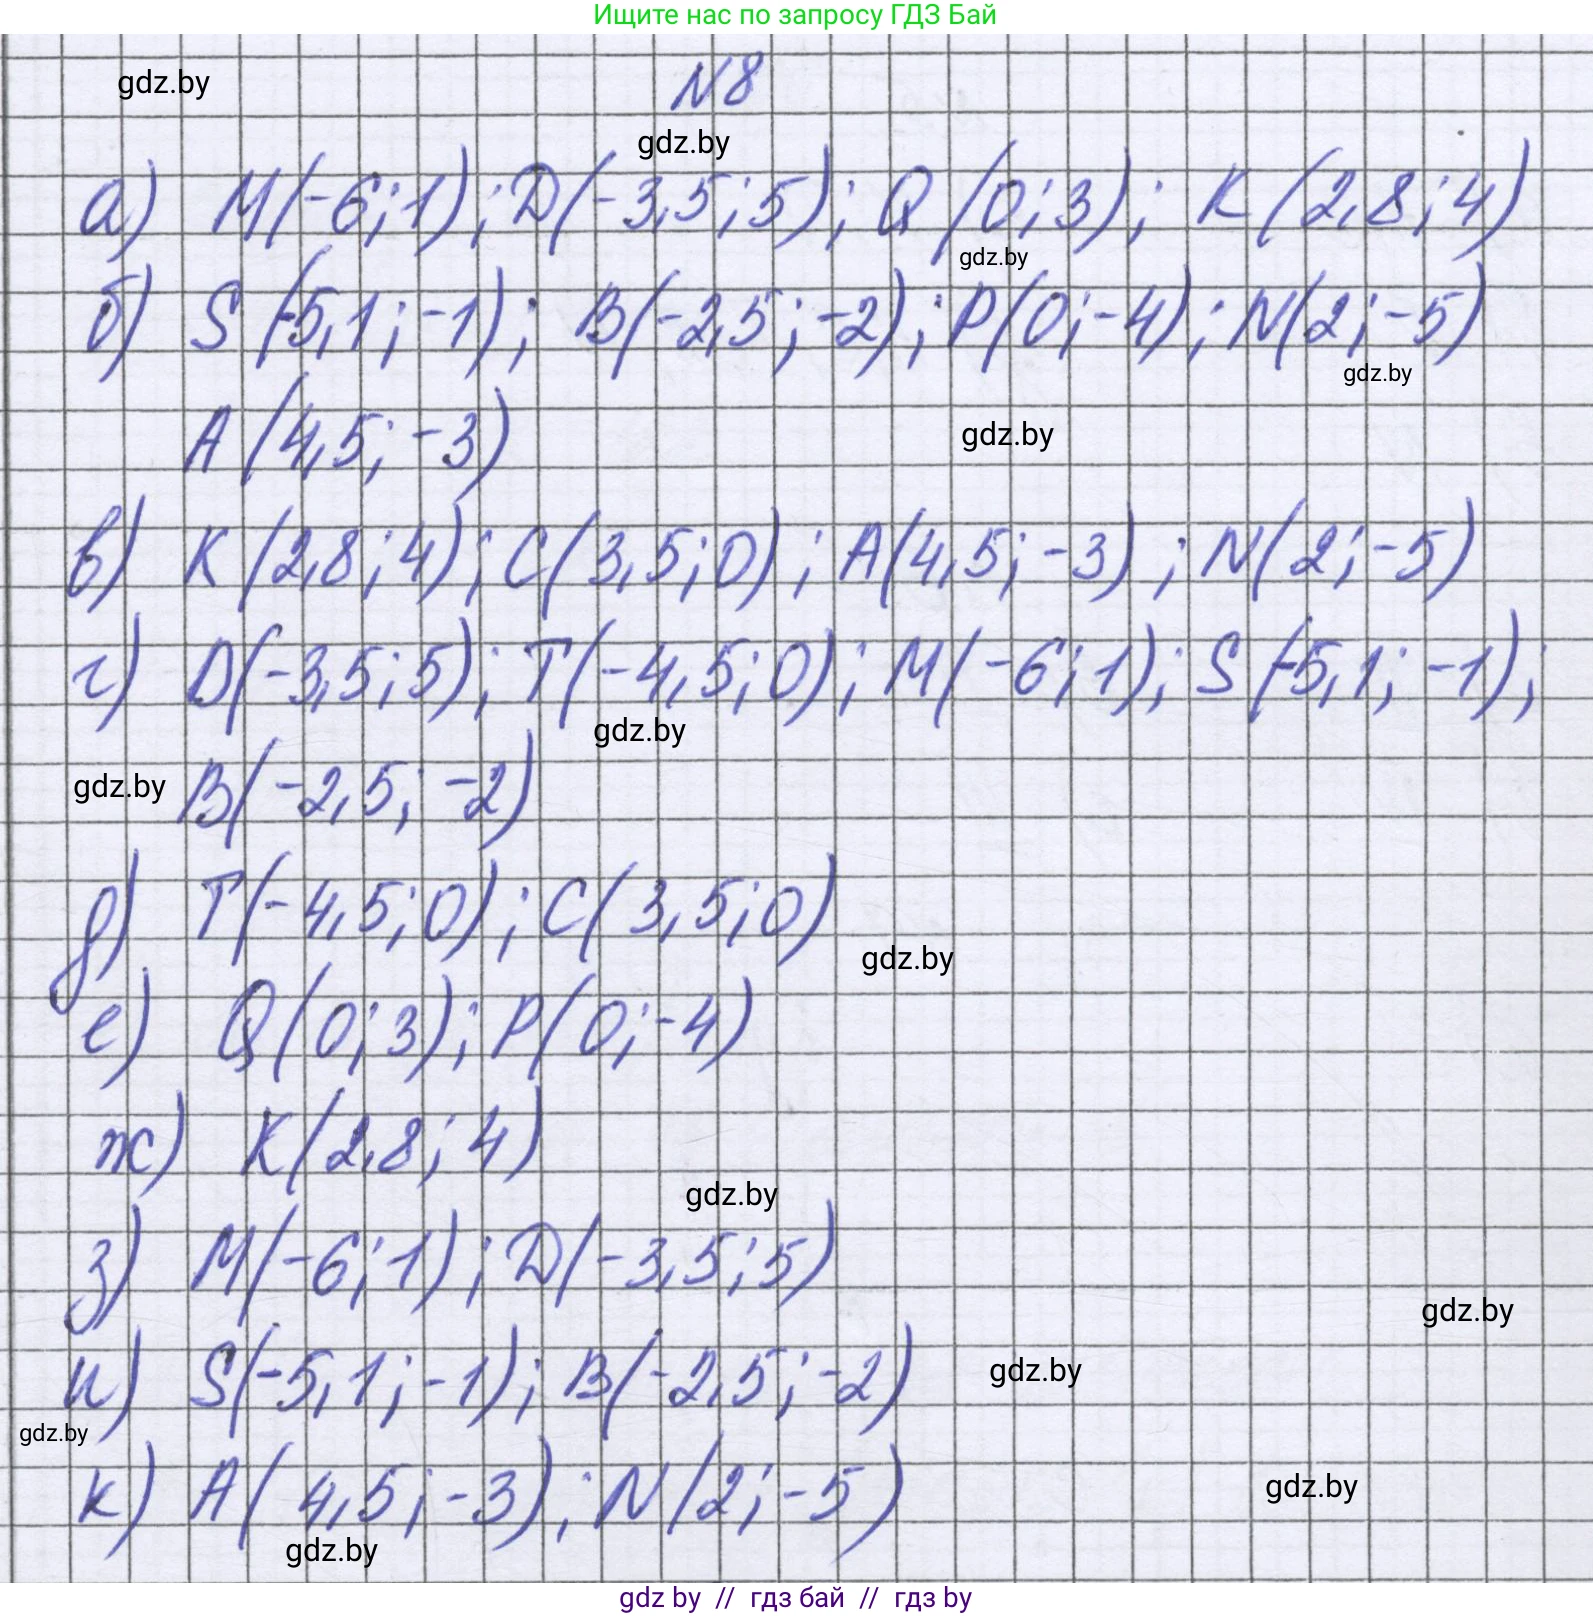 Ищите нас по запросу ГДЗ Бай
N8
gdz.by
gdz.by
а) M(-6;1); D(-3,5;5); Q(0;3); K(2,8;4)
gdz.by
б) S(-5,1;-1); B(-2,5;-2); P(0;-4); N(2;-5)
gdz.by
A(4,5;-3)
gdz.by
в) K(2,8;4); C(3,5;0); A(4,5;-3); N(2;-5)
г) D(-3,5;5); T(-4,5;0); M(-6;1); S(-5,1;-1);
gdz.by
gdz.by
B(-2,5;-2)
д) T(-4,5;0); C(3,5;0)
gdz.by
е) Q(0;3); P(0;-4)
ж) K(2,8;4)
gdz.by
з) M(-6;1); D(-3,5;5)
gdz.by
и) S(-5,1;-1); B(-2,5;-2)
gdz.by
gdz.by
к) A(4,5;-3); N(2;-5)
gdz.by
gdz.by
gdz by // гдз бай // гдз by